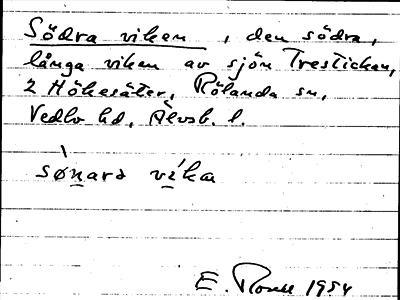 Södra viken, den södra,
långa viken av sjön Trestickan,
2 Hökesäter, Rölanda sn,
Vedbo hd, Älvsb. l.
sønarə vika
E. 1954